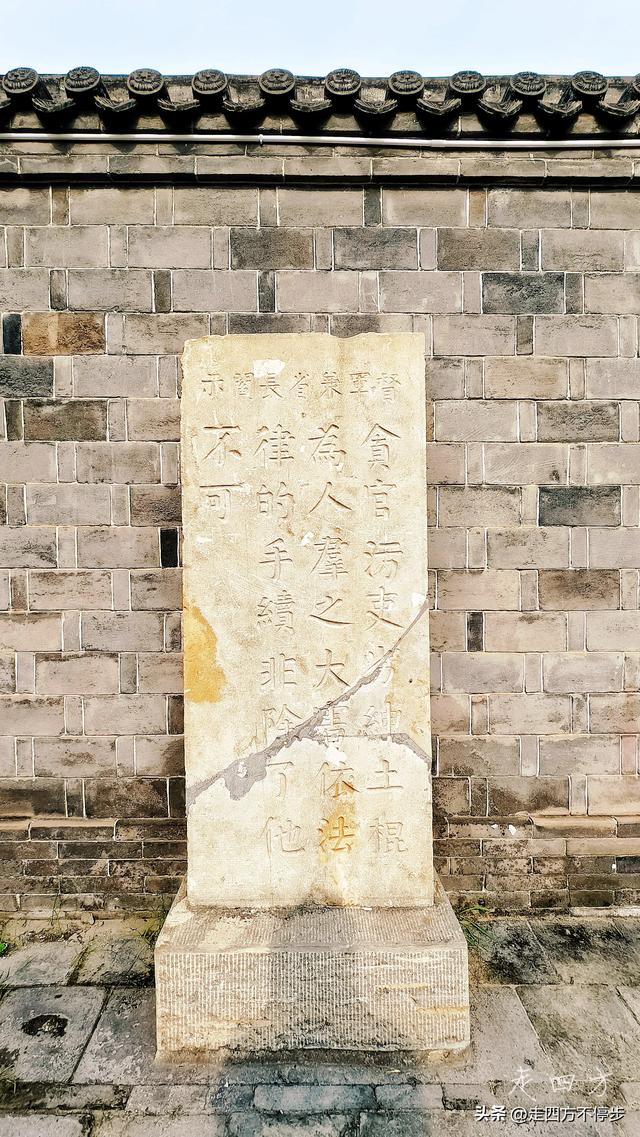 督軍兼省長閻示
貪官污吏劣紳土棍
為人羣之大害依法
律的手續非除了他
不可
走四方
头条 @走四方不停步